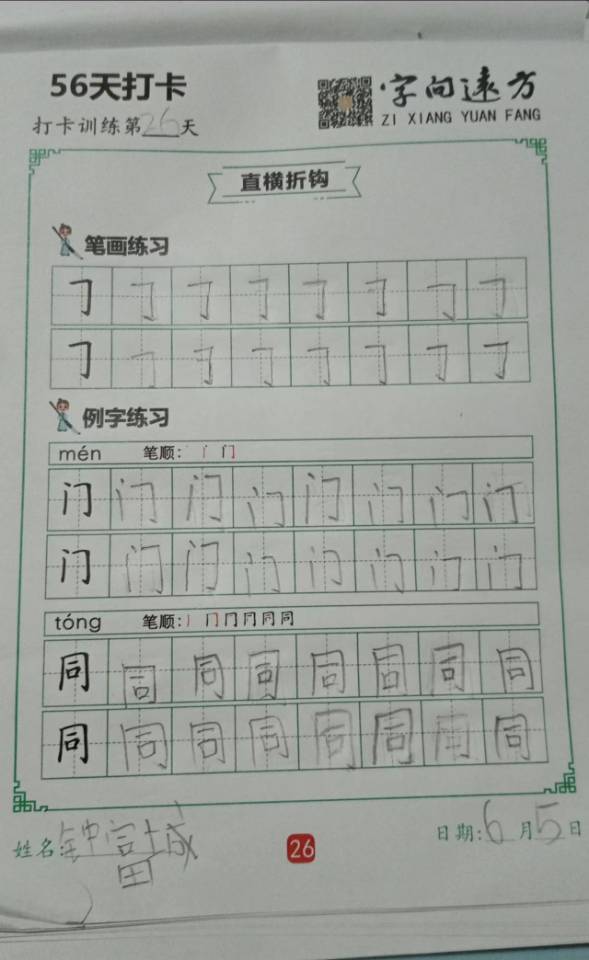 56天打卡
字向远方
ZI XIANG YUAN FANG
打卡训练第26天
直横折钩
笔画练习
㇆ ㇆ ㇆ ㇆ ㇆ ㇆ ㇆ ㇆
㇆ ㇆ ㇆ ㇆ ㇆ ㇆ ㇆ ㇆
例字练习
mén 笔顺:
门 门 门 门 门 门 门 门
门 门 门 门 门 门 门 门
tóng 笔顺:
同 同 同 同 同 同 同 同
同 同 同 同 同 同 同 同
姓名:钟富城
26
日期:6月5日